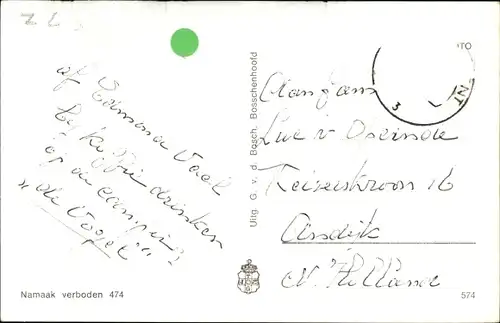 Z L
of Ramona Vael
bij koffie drinken
op de camping
"de Vogel"
Uitg. G. v. d. Bosch, Bosschenhoofd
TO
NT
Aan fam
Luc v Dreinde
Keizerskroon 16
Andijk
N. Holland
Namaak verboden 474
574